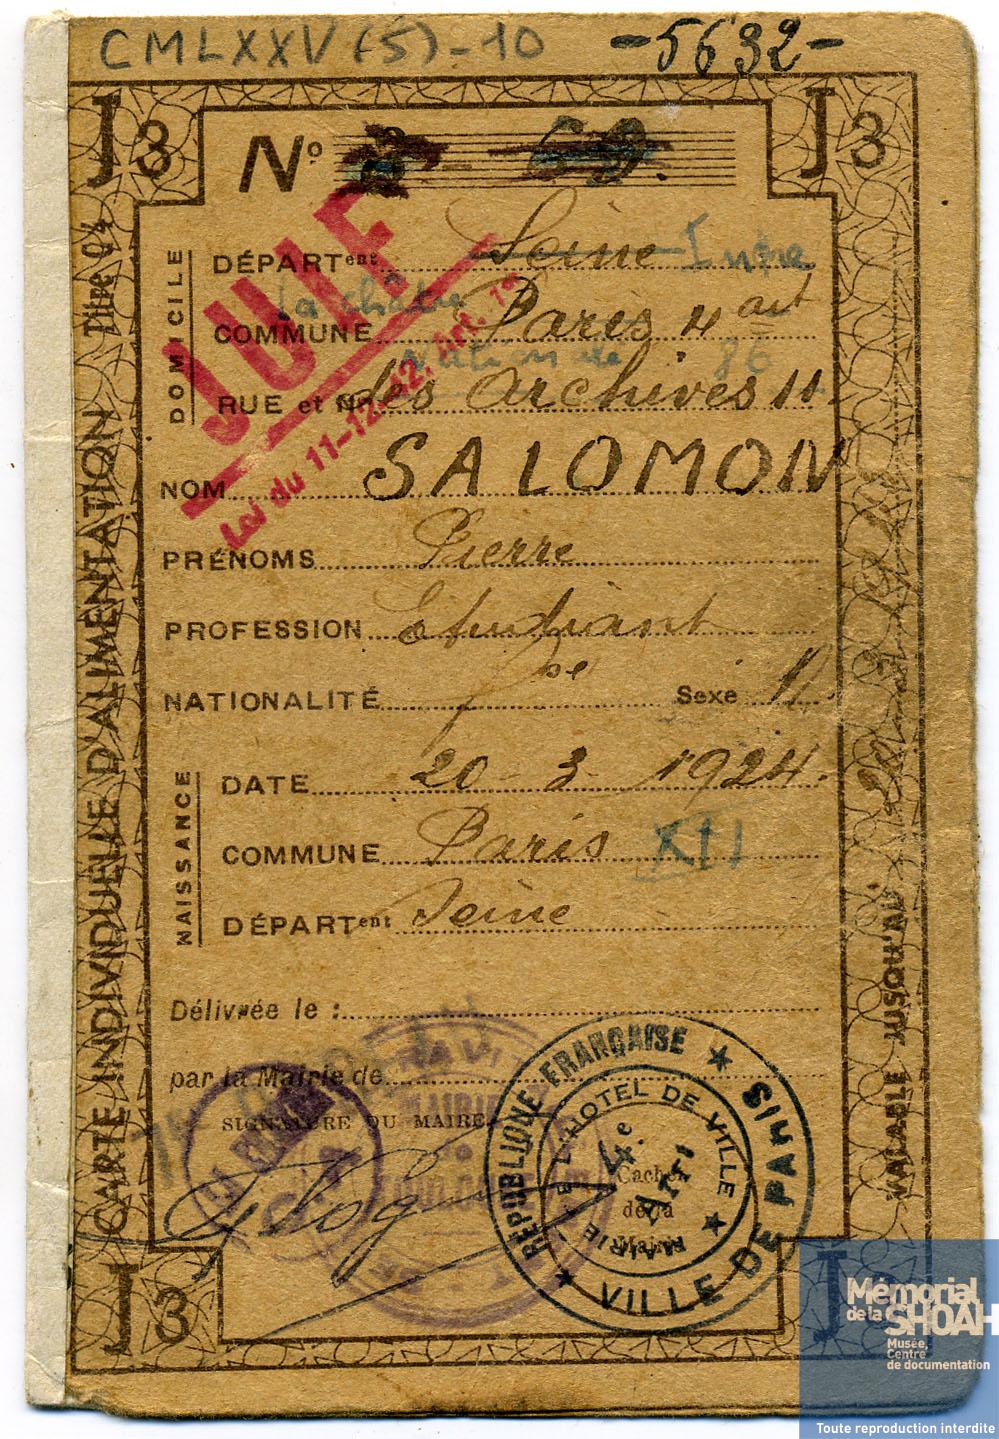 CMLXXV(5)-10
-5632-
J3
J3
Nº
DOMICILE
DÉPARTent Seine Indre
La Châtre
COMMUNE Paris 4 art
Nationale 86
RUE et No des Archives 11.
NOM SALOMON
PRÉNOMS Pierre
PROFESSION Etudiant
NATIONALITÉ fse Sexe M.
NAISSANCE
DATE 20-3-1924.
COMMUNE Paris XII
DÉPARTent Seine
Délivrée le :
par la Mairie de
SIGNATURE DU MAIRE
Cachet
de la
Mairie
JUIF
Loi du 11-12-42, Art. 1er
CARTE INDIVIDUELLE D'ALIMENTATION Titre 04
VALABLE JUSQU'AU
RÉPUBLIQUE FRANÇAISE
VILLE DE PARIS
MAIRIE DE L'HÔTEL DE VILLE
4e Arrt
MAIRIE
J3
J3
Mémorial
de la SHOAH
Musée,
Centre
de documentation
Toute reproduction interdite